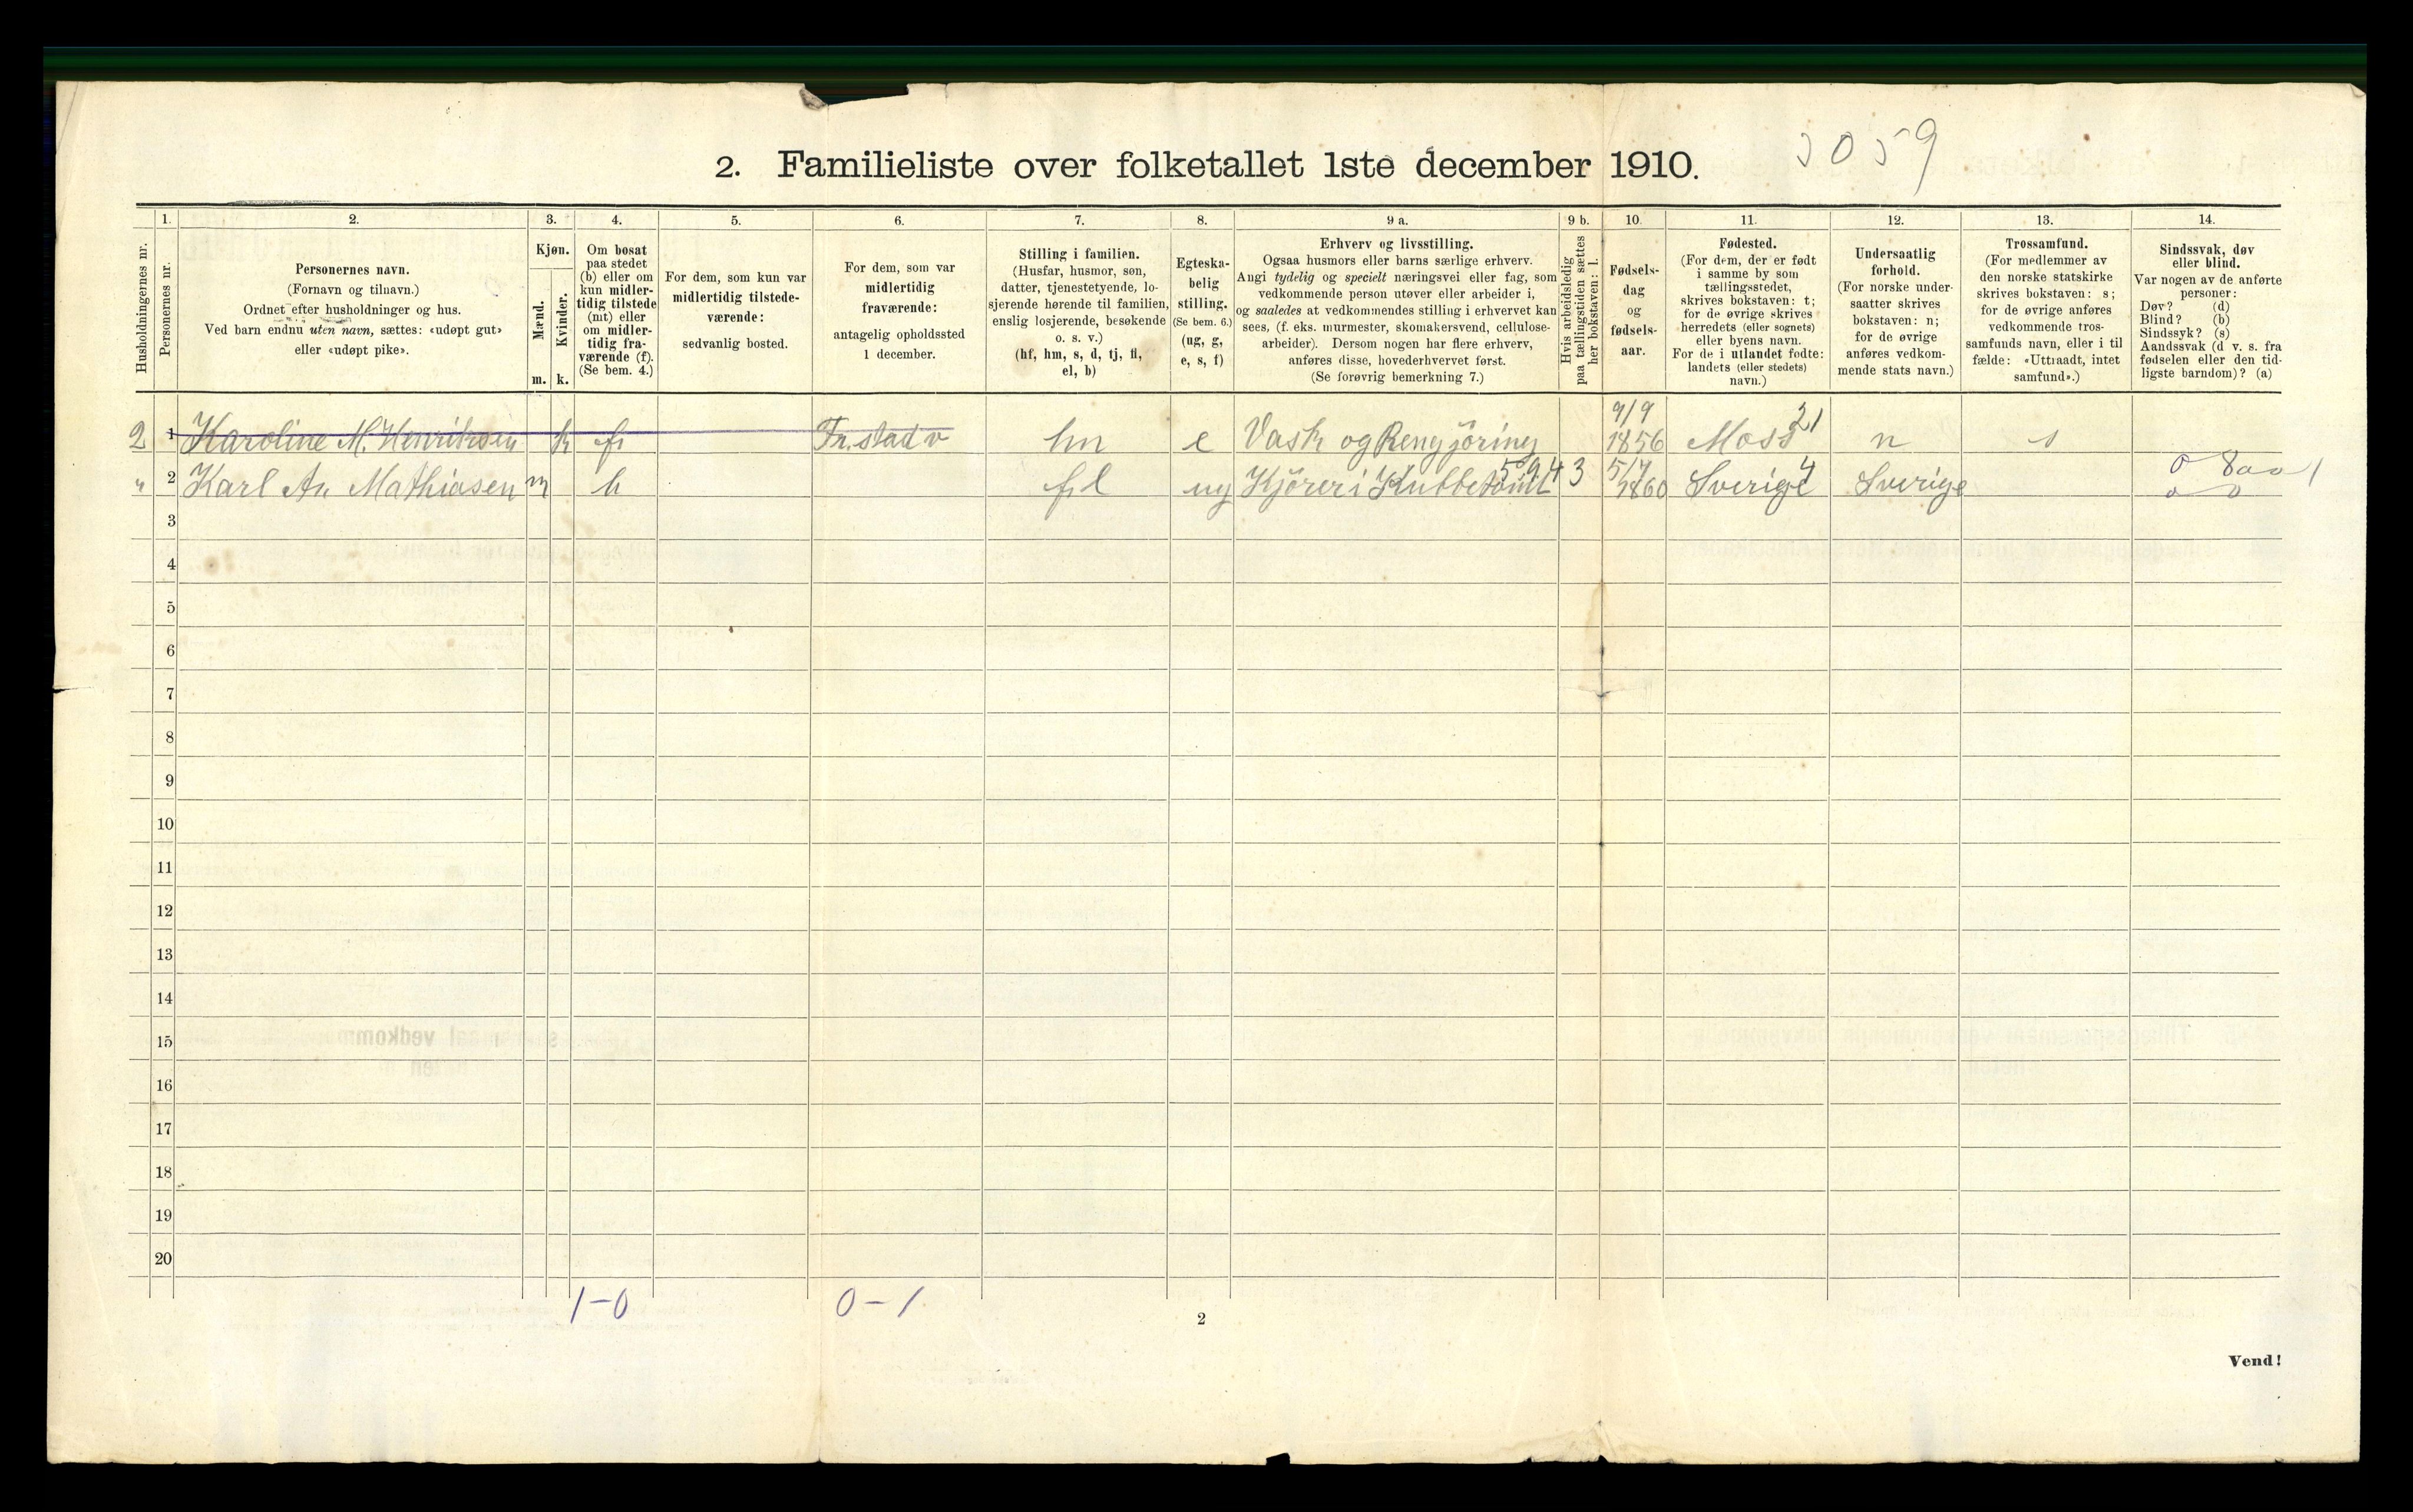 3059
2. Familieliste over folketallet 1ste december 1910.
1. 2. 3. 4. 5. 6. 7. 8. 9 a. 9 b. 10. 11. 12. 13. 14.
Husholdningernes nr.
Personernes nr.
Personernes navn.
(Fornavn og tilnavn.)
Ordnet efter husholdninger og hus.
Ved barn endnu uten navn, sættes: «udøpt gut»
eller «udøpt pike».
Kjøn.
Mænd.
Kvinder.
m. k.
Om bosat
paa stedet
(b) eller om
kun midler-
tidig tilstede
(mt) eller
om midler-
tidig fra-
værende (f).
(Se bem. 4.)
For dem, som kun var
midlertidig tilstede-
værende:
sedvanlig bosted.
For dem, som var
midlertidig
fraværende:
antagelig opholdssted
1 december.
Stilling i familien.
(Husfar, husmor, søn,
datter, tjenestetyende, lo-
sjerende hørende til familien,
enslig losjerende, besøkende
o. s. v.)
(hf, hm, s, d, tj, fl,
el, b)
Egteska-
belig
stilling.
(Se bem. 6.)
(ug, g,
e, s, f)
Erhverv og livsstilling.
Ogsaa husmors eller barns særlige erhverv.
Angi tydelig og specielt næringsvei eller fag, som
vedkommende person utøver eller arbeider i,
og saaledes at vedkommendes stilling i erhvervet kan
sees, (f. eks. murmester, skomakersvend, cellulose-
arbeider). Dersom nogen har flere erhverv,
anføres disse, hovederhvervet først.
(Se forøvrig bemerkning 7.)
Hvis arbeidsledig
paa tællingstiden sættes
her bokstaven: l.
Fødsels-
dag
og
fødsels-
aar.
Fødested.
(For dem, der er født
i samme by som
tællingsstedet,
skrives bokstaven: t;
for de øvrige skrives
herredets (eller sognets)
eller byens navn.
For de i utlandet fødte:
landets (eller stedets)
navn.)
Undersaatlig
forhold.
(For norske under-
saatter skrives
bokstaven: n;
for de øvrige
anføres vedkom-
mende stats navn.)
Trossamfund.
(For medlemmer av
den norske statskirke
skrives bokstaven: s;
for de øvrige anføres
vedkommende tros-
samfunds navn, eller i til
fælde: «Uttraadt, intet
samfund».)
Sindssvak, døv
eller blind.
Var nogen av de anførte
personer:
Døv? (d)
Blind? (b)
Sindssyk? (s)
Aandssvak (d v. s. fra
fødselen eller den tid-
ligste barndom)? (a)
2 1 Karoline M. Henriksen k f Fr.stad v hm e Vask og Rengjöring 9/9 1856 Moss 21 n s
" 2 Karl An Mathiasen m b fl ug Kjörer i Kubbetomt 594 3 5/7 1860 Sverige 4 Sverige
3
4
5
6
7
8
9
10
11
12
13
14
15
16
17
18
19
20
1-0 0-1
2
Vend!